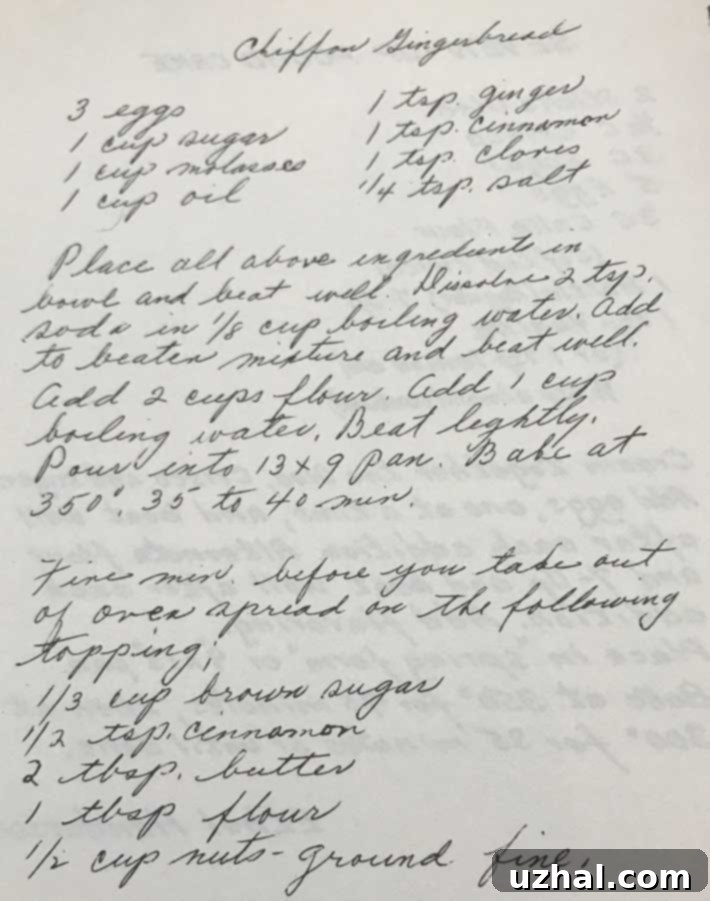 Chiffon Gingerbread
3 eggs
1 cup sugar
1 cup molasses
1 cup oil
1 tsp. ginger
1 tsp. cinnamon
1 tsp. cloves
1/4 tsp. salt
Place all above ingredients in
bowl and beat well. Dissolve 2 tsp.
soda in 1/8 cup boiling water. Add
to beaten mixture and beat well.
Add 2 cups flour. Add 1 cup
boiling water. Beat lightly.
Pour into 13 x 9 pan. Bake at
350°. 35 to 40 min.
Five min. before you take out
of oven spread on the following
topping,
1/3 cup brown sugar
1/2 tsp. cinnamon
2 tbsp. butter
1 tbsp flour
1/2 cup nuts - ground fine.
uzhal.com